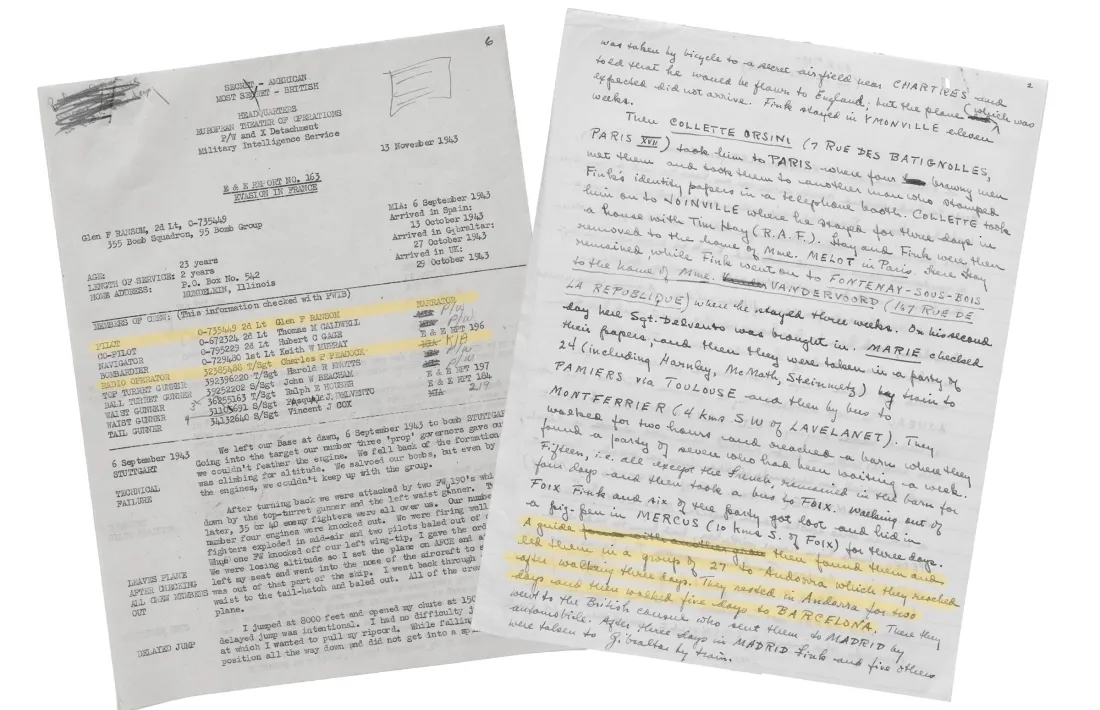 6
SECRET - AMERICAN
MOST SECRET - BRITISH
HEADQUARTERS
EUROPEAN THEATER OF OPERATIONS
P/W and X Detachment
Military Intelligence Service
13 November 1943
E & E REPORT NO. 163
EVASION IN FRANCE
Glen F RANSOM, 2d Lt, O-735449
355 Bomb Squadron, 95 Bomb Group
MIA: 6 September 1943
Arrived in Spain:
13 October 1943
Arrived in Gibraltar:
27 October 1943
Arrived in UK:
29 October 1943
AGE: 23 years
LENGTH OF SERVICE: 2 years
HOME ADDRESS: P.O. Box No. 542
MUNDELEIN, Illinois
MEMBERS OF CREW: (This information checked with PWIB)
PILOT 0-735449 2d Lt Glen F RANSOM NARRATOR
CO-PILOT 0-672324 2d Lt Thomas M CALDWELL P/W
NAVIGATOR 0-795229 2d Lt Hubert C GAGE P/W
BOMBARDIER 0-729480 1st Lt Keith W MURRAY E & E RPT 196
RADIO OPERATOR 32385488 T/Sgt Charles P PEACOCK K/A
TOP TURRET GUNNER 392396220 T/Sgt Harold R KNOTTS P/W
BALL TURRET GUNNER 39252202 S/Sgt John W BEACHAM P/W
WAIST GUNNER 36255163 T/Sgt Ralph E HOUSER E & E RPT 197
WAIST GUNNER 31105691 S/Sgt Pasquale J. DELVENTO E & E RPT 184
TAIL GUNNER 34132640 S/Sgt Vincent J COX MIA
6 September 1943
STUTTGART
TECHNICAL
FAILURE
We left our Base at dawn, 6 September 1943 to bomb STUTTGAR
Going into the target our number three 'prop' governors gave ou
we couldn't feather the engine. We fell back of the formation
was climbing for altitude. We salvoed our bombs, but even by
the engines, we couldn't keep up with the group.
After turning back we were attacked by two FW 190's whi
down by the top-turret gunner and the left waist gunner. T
later, 35 or 40 enemy fighters were all over us. Our numbe
number four engines were knocked out. We were firing well
fighters exploded in mid-air and two pilots baled out of
Whup one FW knocked off our left wing-tip, I gave the ord
We were losing altitude so I set the plane on AFCE and af
left my seat and went into the nose of the aircraft to s
was out of that part of the ship. I went back through
waist to the tail-hatch and baled out. All of the crew
plane.
LEAVES PLANE
AFTER CHECKING
ALL CREW MEMBERS
OUT
DELAYED JUMP
I jumped at 8000 feet and opened my chute at 150
delayed jump was intentional. I had no difficulty
at which I wanted to pull my ripcord. While fallin
position all the way down and did not get into a sp
2
was taken by bicycle to a secret airfield near CHARTRES and
told that he would be flown to England, but the plane (which was
expected did not arrive. Fink stayed in YMONVILLE eleven
weeks.
Then COLLETTE ORSINI (7 RUE DES BATIGNOLLES,
PARIS XVII) took him to PARIS where four brawny men
met them and took them to another man who stamped
Fink's identity papers in a telephone booth. COLLETTE took
him on to JOINVILLE where he stayed for three days in
a house with Tim Hay (R.A.F.). Hay and Fink were then
removed to the home of Mme. MELOT in Paris. There Hay
remained while Fink went on to FONTENAY-SOUS-BOIS
to the home of Mme. VANDERVOORD (167 RUE DE
LA REPUBLIQUE) where he stayed three weeks. On his second
day here Sgt. Delvento was brought in. MARIE checked
their papers, and then they were taken in a party of
24 (including Harnley, McMath, Steinmetz) by train to
PAMIERS via TOULOUSE and then by bus to
MONTFERRIER (4 kms S.W of LAVELANET). They
walked for two hours and reached a barn where they
found a party of seven who had been waiting a week.
Fifteen, i.e. all except the French remained in the barn for
four days and then took a bus to FOIX. Walking out of
FOIX Fink and six of the party got lost and hid in
a pig-pen in MERCUS (10 kms S. of FOIX) for three days.
A guide then found them and
led them in a group of 27 to Andorra which they reached
after walking three days. They rested in Andorra for two
days and then walked five days to BARCELONA. There they
went to the British consul who sent them to MADRID by
automobile. After three days in MADRID Fink and five others
were taken to Gibraltar by train.